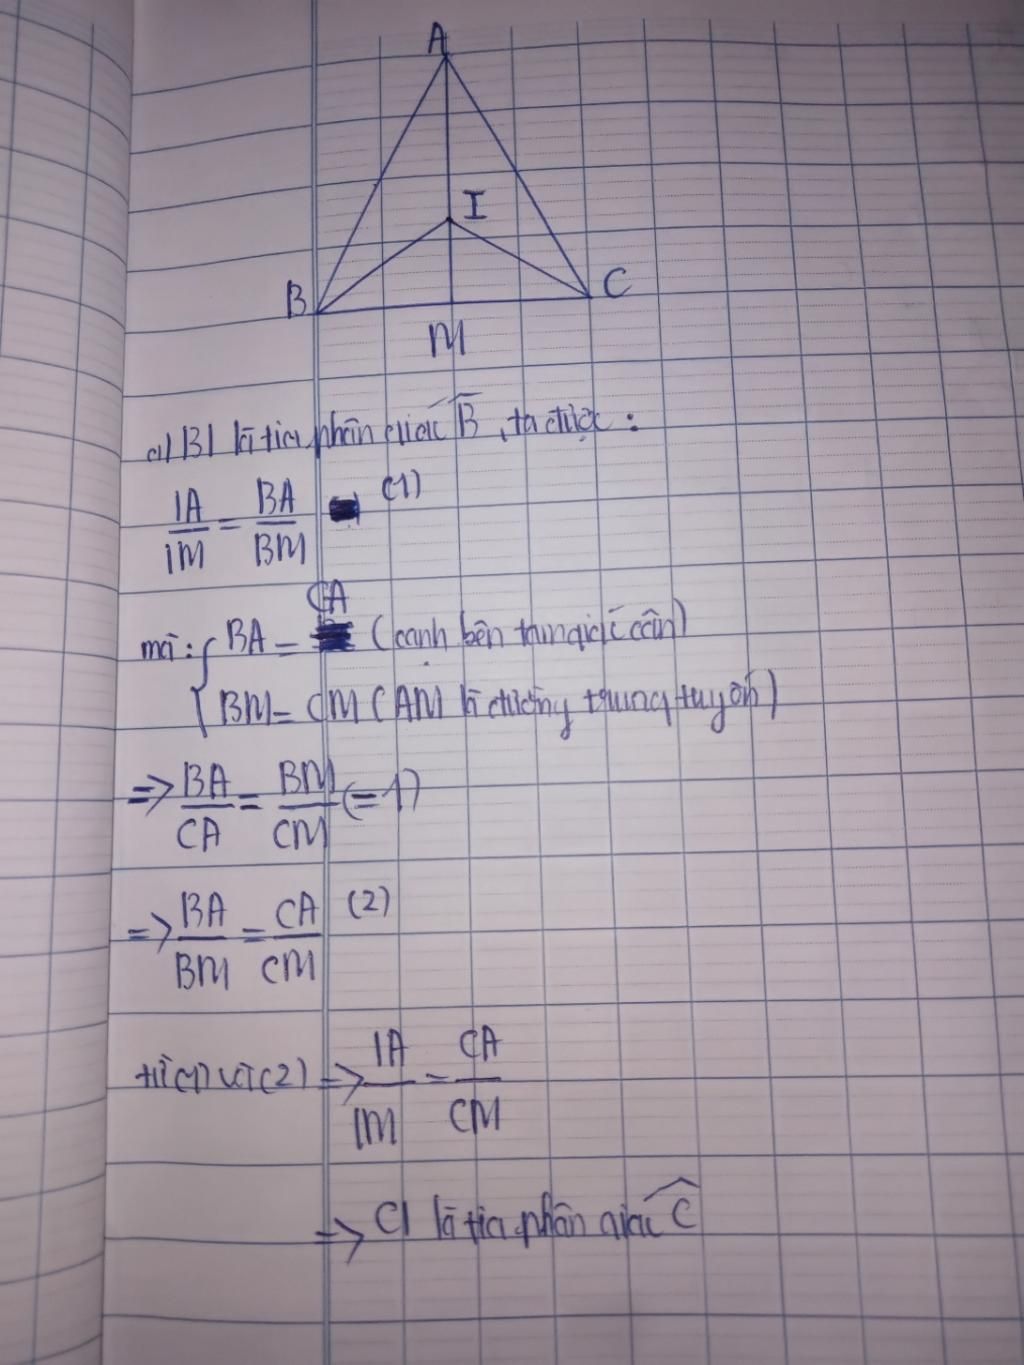 A
I
B
C
M
a) BI là tia phân giác B̂, ta được:
IA/IM = BA/BM (1)
mà: { BA = CA (cạnh bên tam giác cân)
BM = CM (AM là đường trung tuyến)
=> BA/CA = BM/CM (= 1)
=> BA/BM = CA/CM (2)
từ (1) và (2) => IA/IM = CA/CM
=> CI là tia phân giác Ĉ